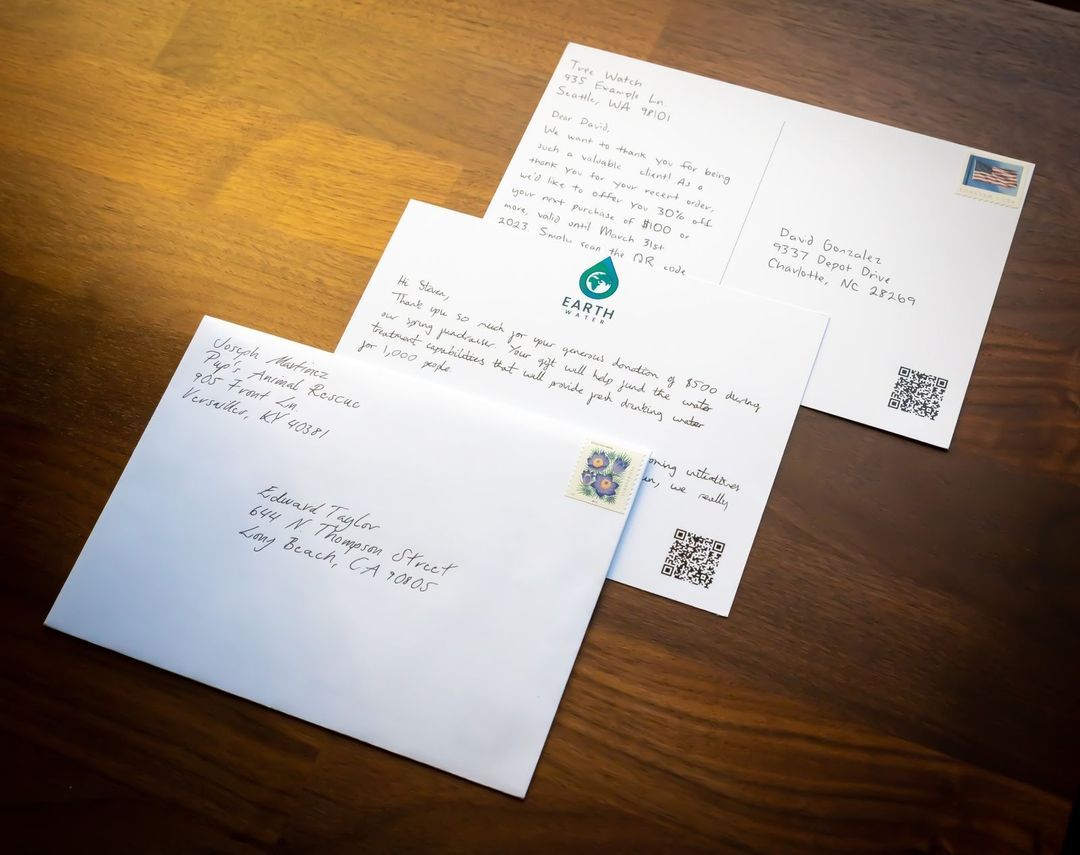 Tree Watch
935 Example Ln.
Seattle, WA 98101
Dear David,
We want to thank you for being
such a valuable client! As a
thank you for your recent order,
we'd like to offer you 30% off
your next purchase of $100 or
more, valid until March 31st
2023. Simply scan the QR code
FOREVER USA
David Gonzalez
9337 Depot Drive
Charlotte, NC 28269
EARTH
WATER
Hi Steven,
Thank you so much for your generous donation of $500 during
our spring fundraiser. Your gift will help fund the water
treatment capabilities that will provide fresh drinking water
for 1,000 people.
initiatives
we really
Joseph Martinez
Pup's Animal Rescue
905 Front Ln.
Versailles, KY 40381
Edward Taylor
644 N. Thompson Street
Long Beach, CA 90805